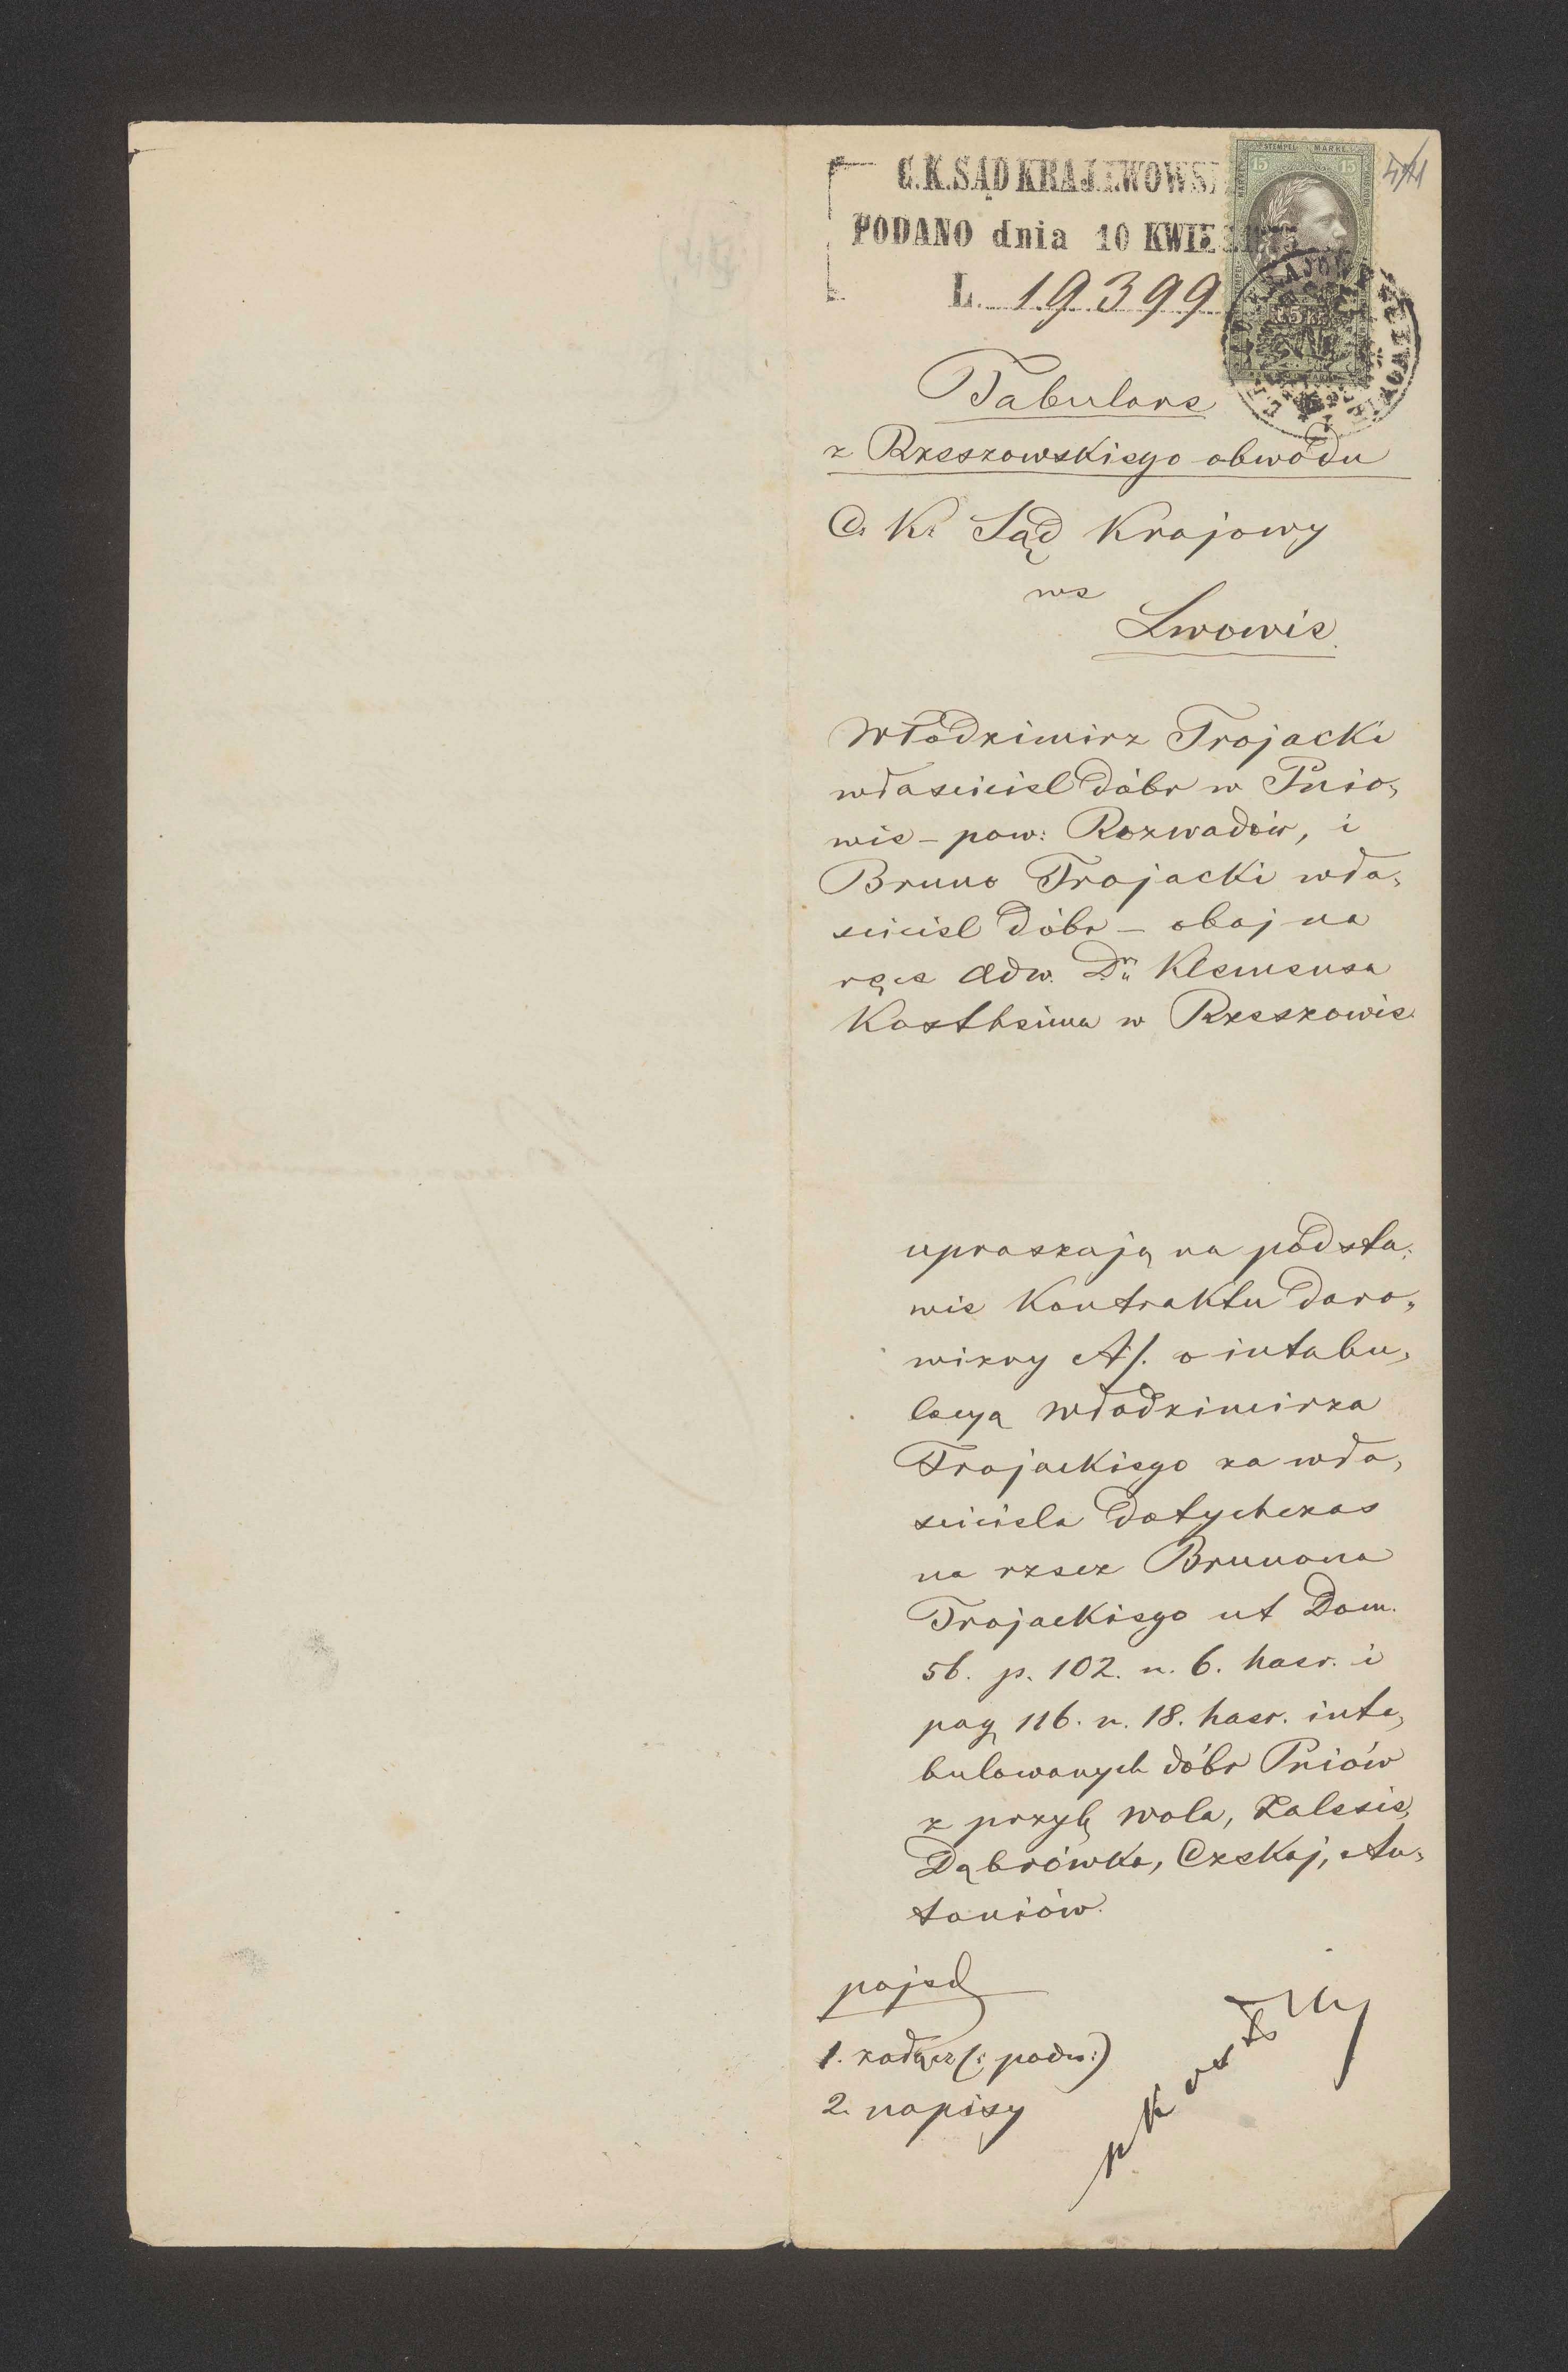 C.K.SĄD KRAJ.LWOWSK
PODANO dnia 10 KWIE 1875
L. 19399
STEMPEL MARKE
15 15
15 Kr
Tabularne
z Rzeszowskiego obwodu
C. K. Sąd Krajowy
we
Lwowie
Włodzimirz Trojacki
właściciel dóbr w Pnio„
wie – pow: Rozwadów, i
Bruno Trojacki wła„
ściciel dóbr – obaj na
ręce adw. Dra Klemensa
Kostheima w Rzeszowie
upraszają na podsta„
wie Kontraktu daro„
wizny A/. o intabu„
lacyą Włodzimirza
Trojackiego za wła„
ściciela dotychczas
na rzecz Brunona
Trojackiego ut Dom.
56. p. 102. n. 6. haer. i
pag 116. n. 18. haer. inta„
bulowanych dóbr Pniów
z przyl. Wola, Zalesie,
Dąbrówka, Czekaj, An„
toniów.
pojed
1. załącz (: podw:)
2. napisy